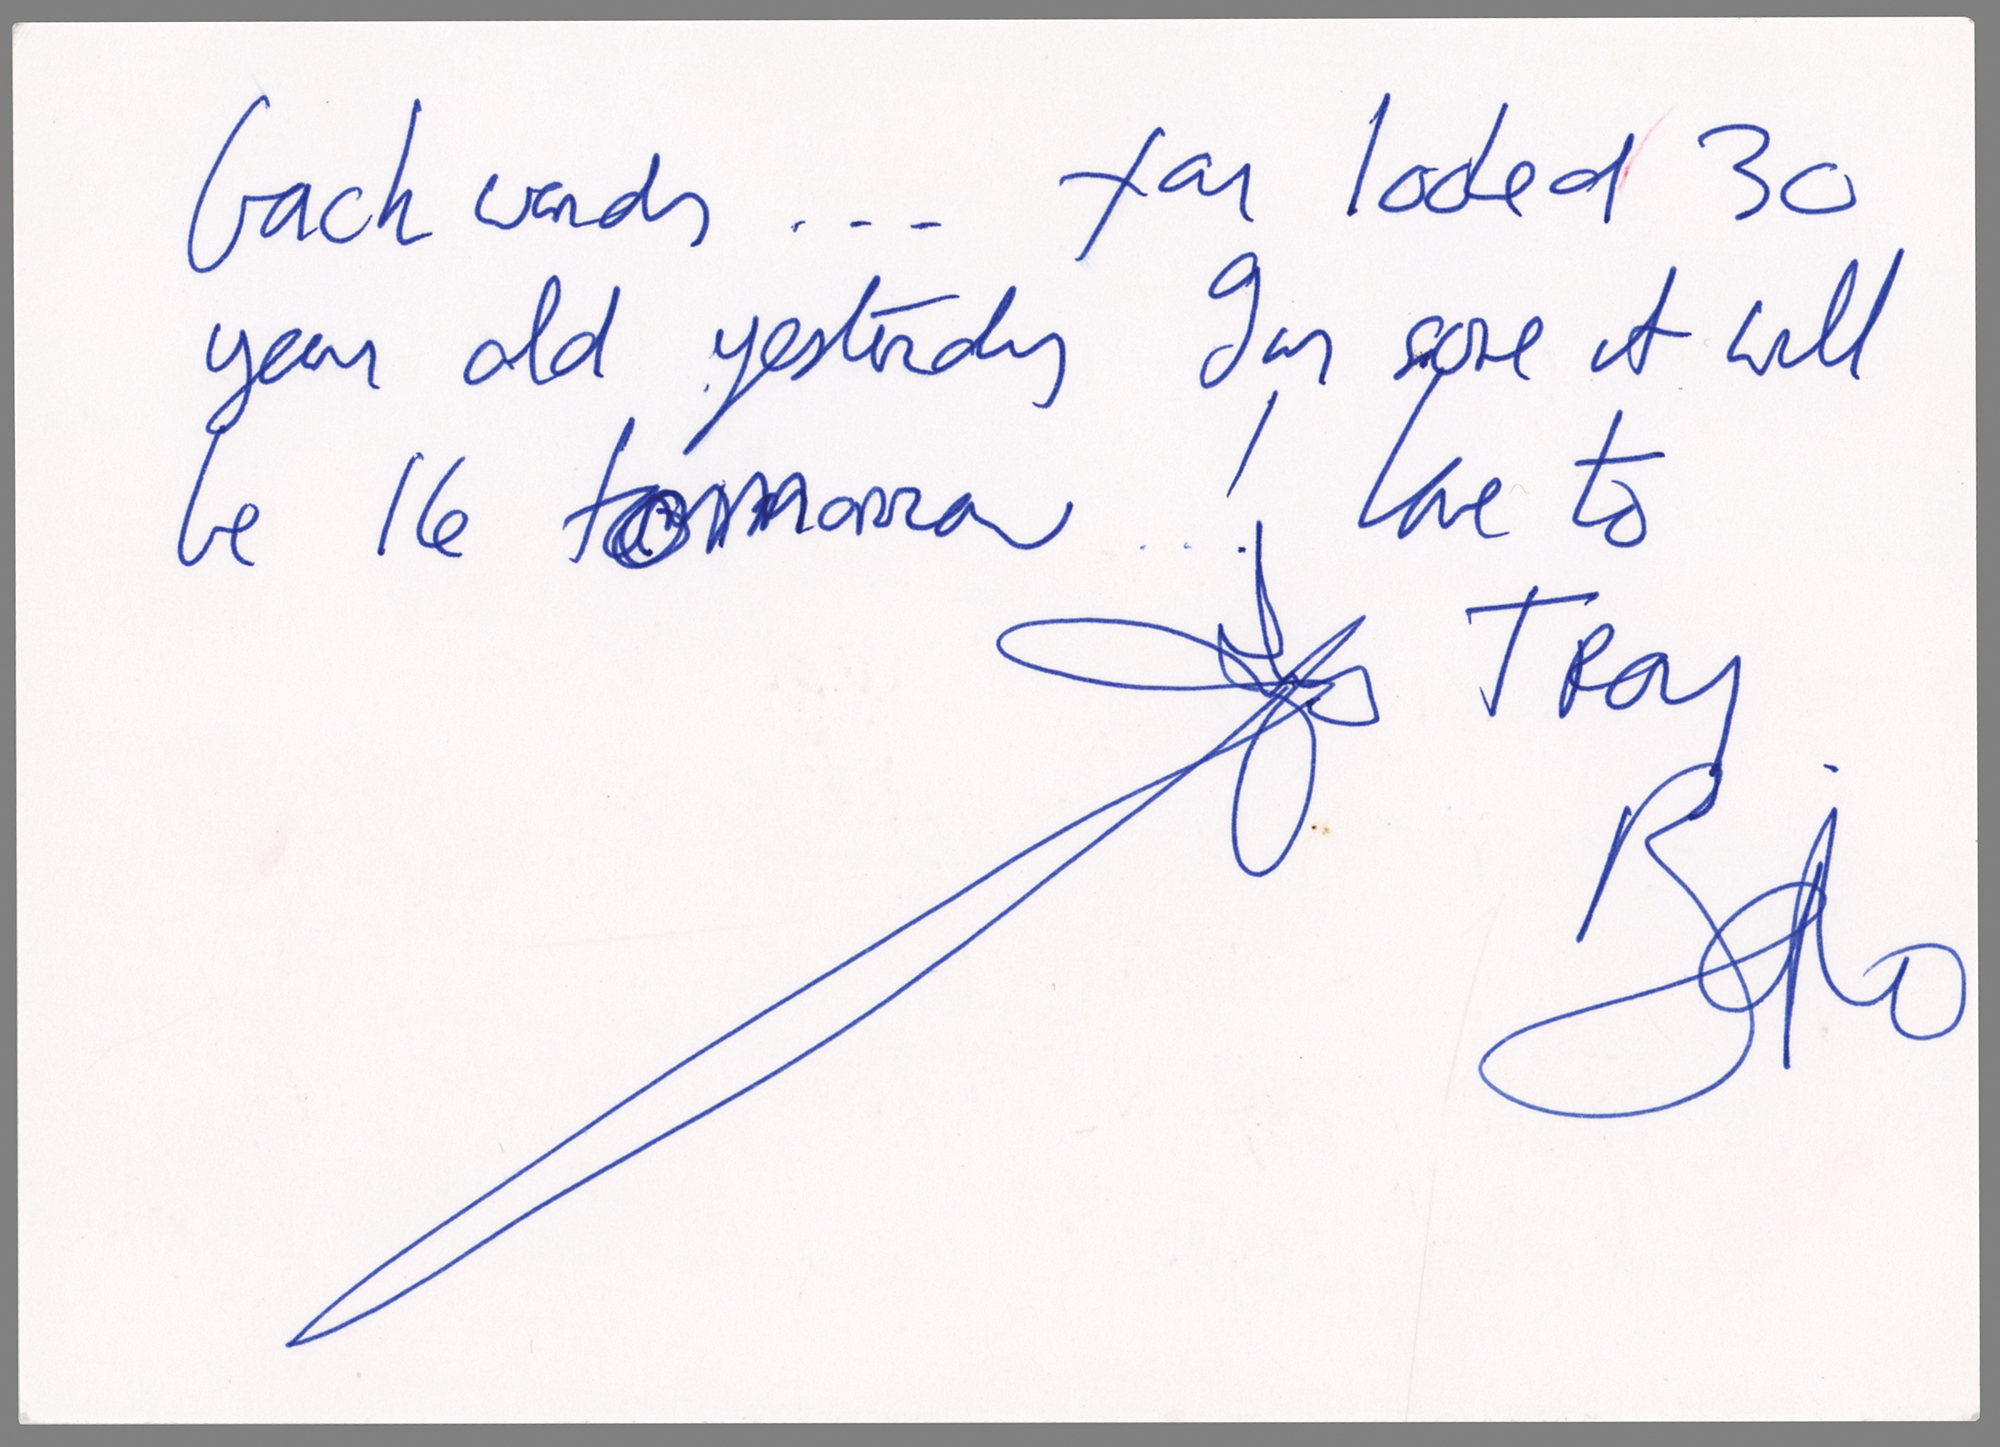 backwards ... You looked 30
year old yesterday I'm sure it will
be 16 tommorrow ...! love to
TRoy